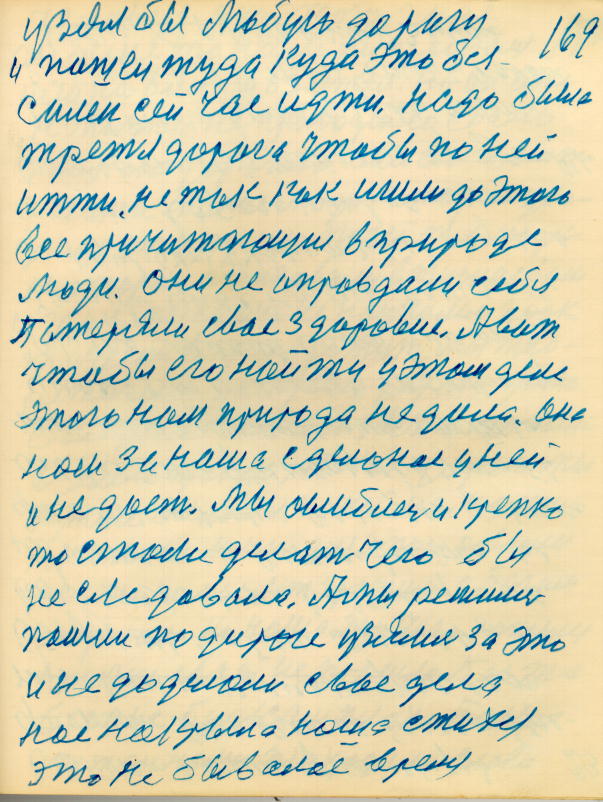 узял бы любую дорогу 169
и пошел туда куда это бы
силен сей час идти. надо была
третья дорога чтобы по ней
итти, не так как шили до этого
все причитающи в природе
люди. Они не оправдали себя
Потеряли свое здоровие. А вот
чтобы его найти у этом деле
этого нам природа не дала. она
нам за наша сделоное у ней
и не дает. Мы ошиблис и крепко
то стали делат чего бы
не следовала. А мы решили
пошли по дироге узялис за это
и не доделали свое дела
нас накрыла наша стихея
это не бывалое время